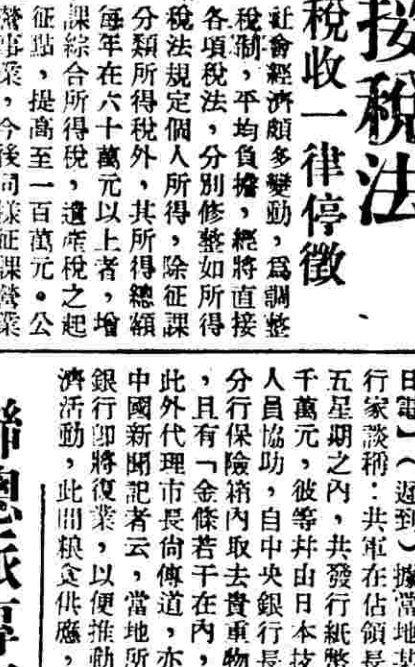 接稅法
稅收一律停徵
社會經濟頗多變動，爲調整
稅制，平均負擔，經將直接
各項稅法，分別修整如所得
稅法規定個人所得，除征課
分類所得稅外，其所得總額
每年在六十萬元以上者，增
課綜合所得稅，遺產稅之起
征點，提高至一百萬元。公
營事業，今後同樣征課營業
日電】（遲到）據當地某
行家談稱：共軍在佔領長
五星期之內，共發行紙幣
千萬元，彼等幷由日本技
人員協助，自中央銀行長
分行保險箱內取去貴重物
，且有「金條若干在內，
此外代理市長尙傳道，亦
中國新聞記者云，當地所
銀行卽將復業，以便推動
濟活動，此間粮食供應，
聯總派專